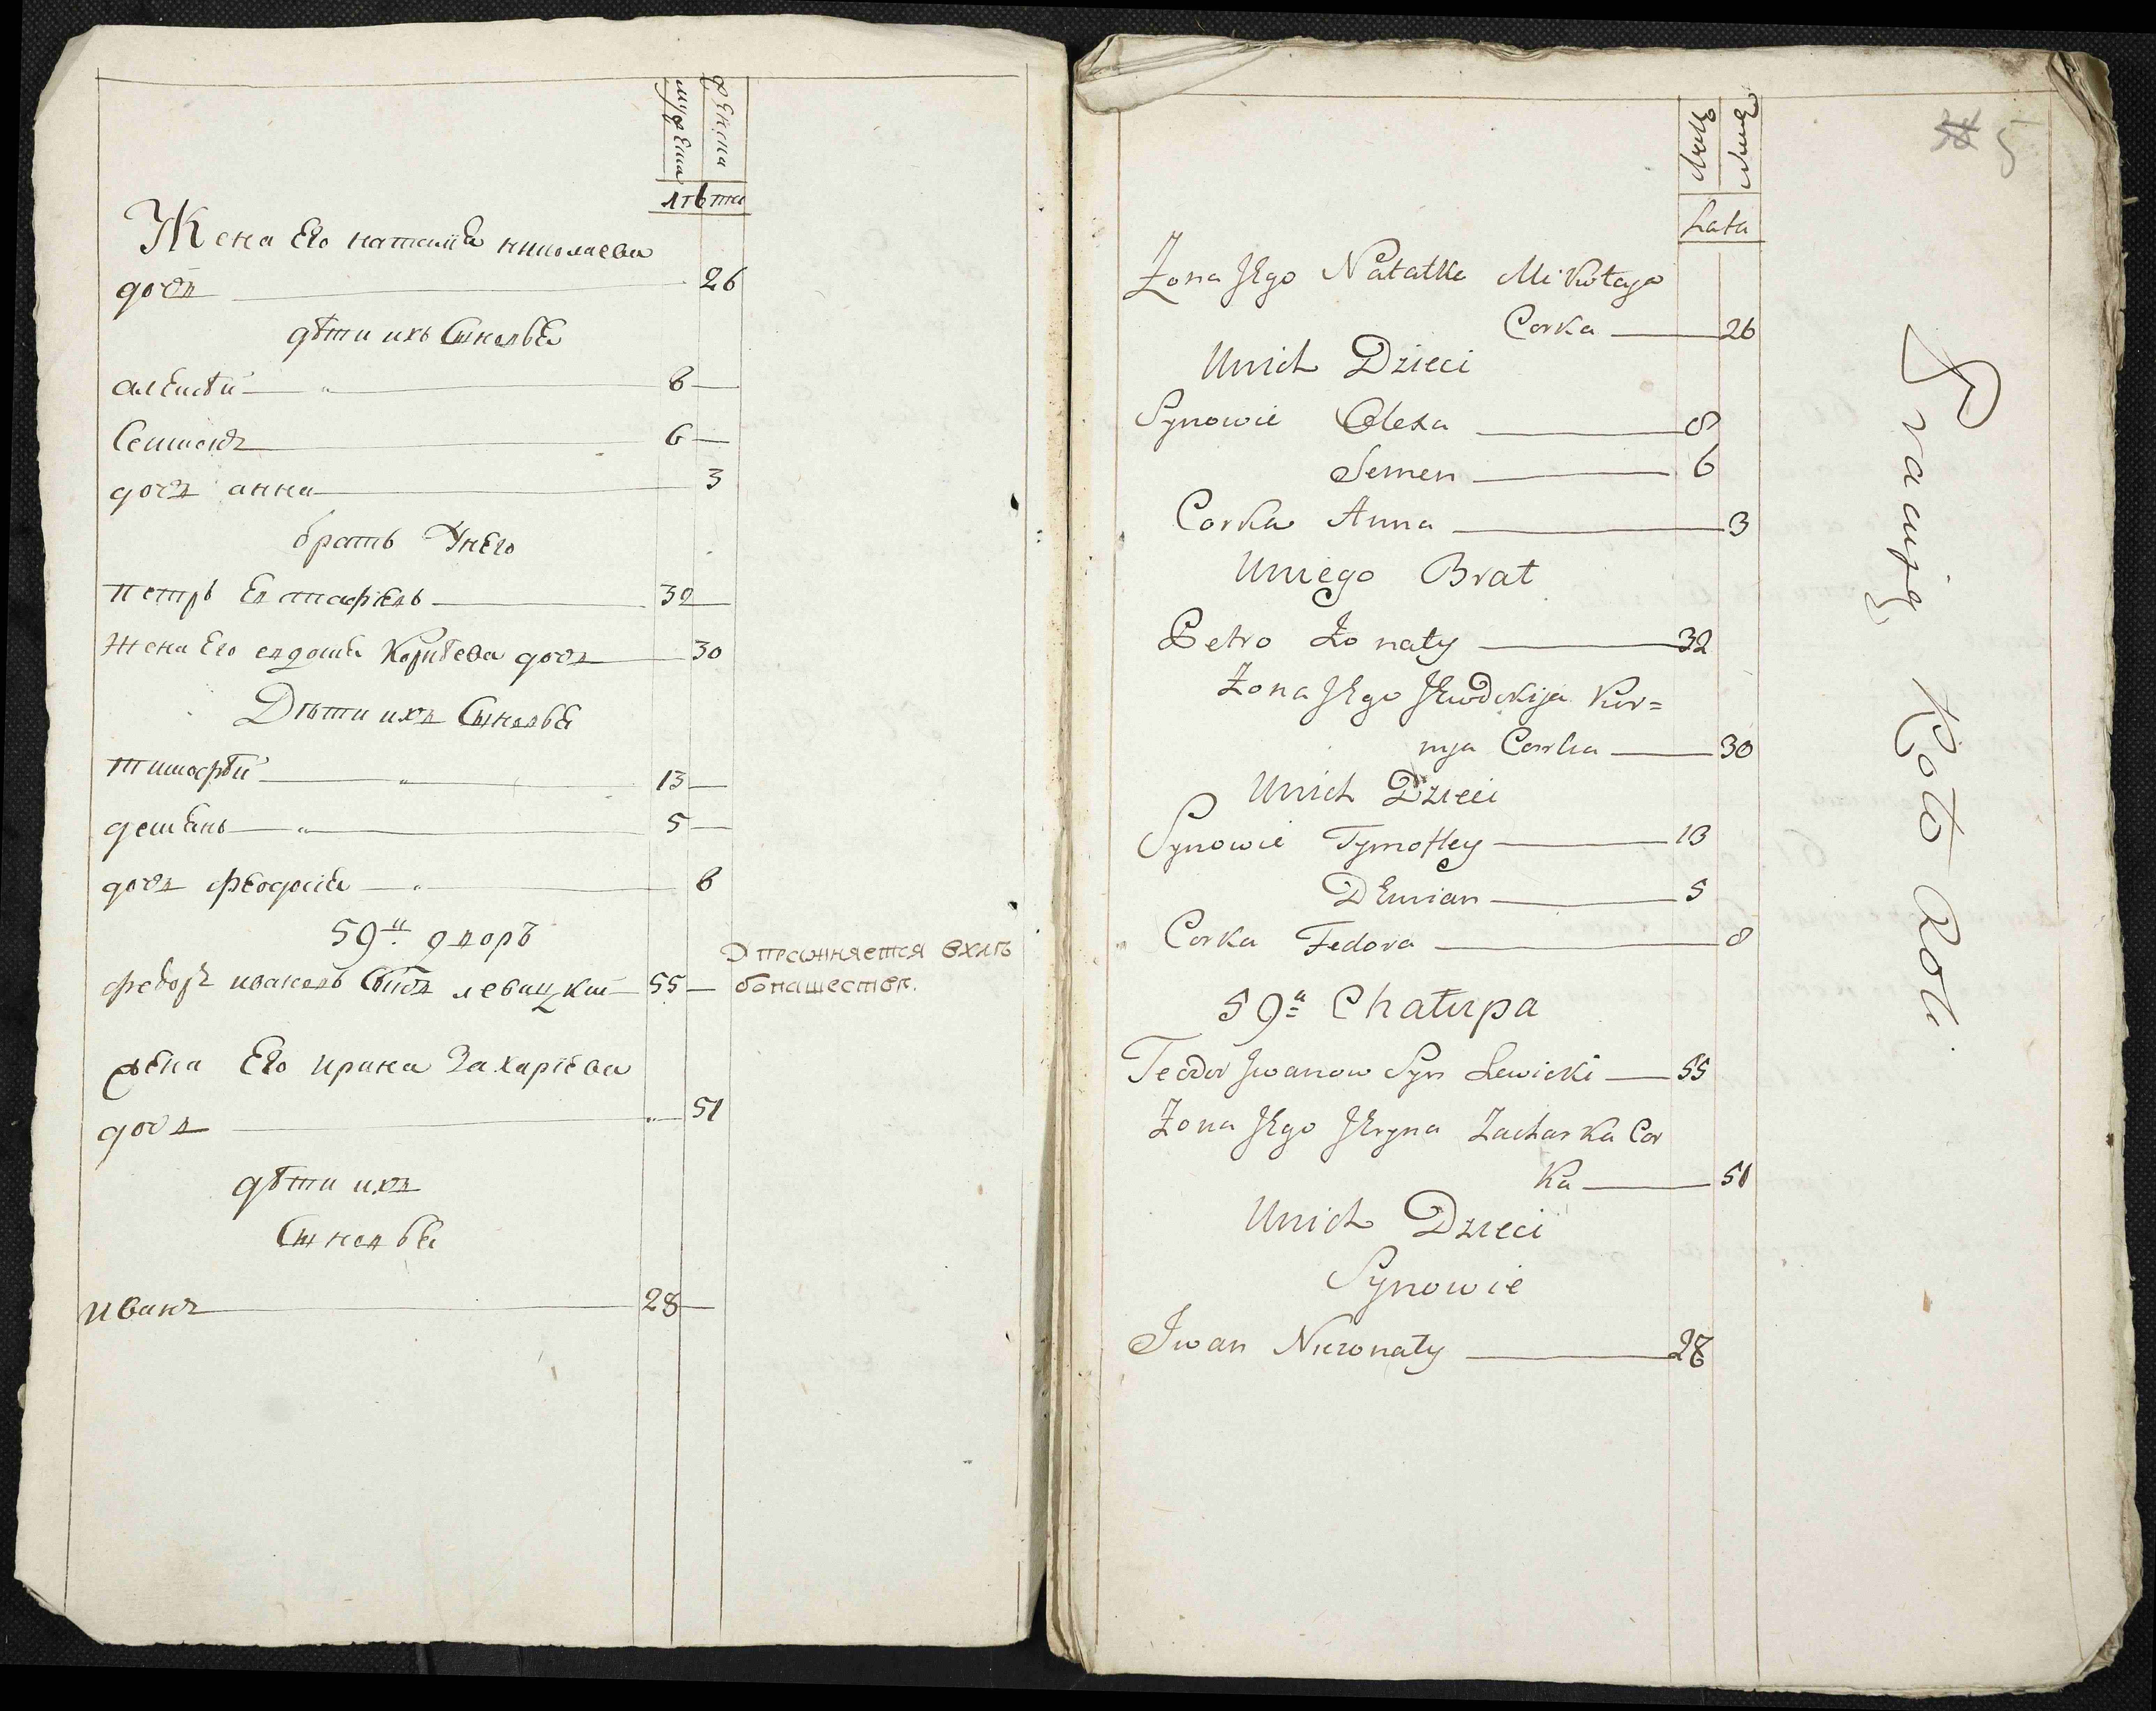 мужеска
женска
лѣта
Жена Его наталиа николаева
дочь 26
дѣти ихъ Сыновья
алексѣй 8
Семионъ 6
дочь анна 3
братъ Унего
петръ Евстафіевъ 32
жена Его евдокия Корнѣева дочь 30
Дѣти ихъ Сыновья
тимофѣй 13
демьянъ 5
дочь феодосиа 8
59й дворъ
федоръ ивановъ Сынъ левицкий 55
упражняется вхлѣ
бопашествѣ.
жена Его ирина Захариева
дочь 51
дѣти ихъ
Сыновья
иванъ 28
5
Męzk
Lata
Zona JEgo Natalka Mikołaja
Corka 26
Unich Dzieci
Synowie Olexa 8
Semen 6
Corka Anna 3
Uniego Brat
Petro Zonaty 32
Zona JEgo JEwdokija Kor=
nya Corka 30
Unich Dzieci
Synowie Tymofiey 13
DEmian 5
Corka Fedora 8
59a Chałupa
Teodor Jwanow Syn Lewicki 55
Zona JEgo JEryna Zacharka Cor
Ka 51
Unich Dzieci
Synowie
Jwan Niezonaty 28
Pracuję Koło Roli